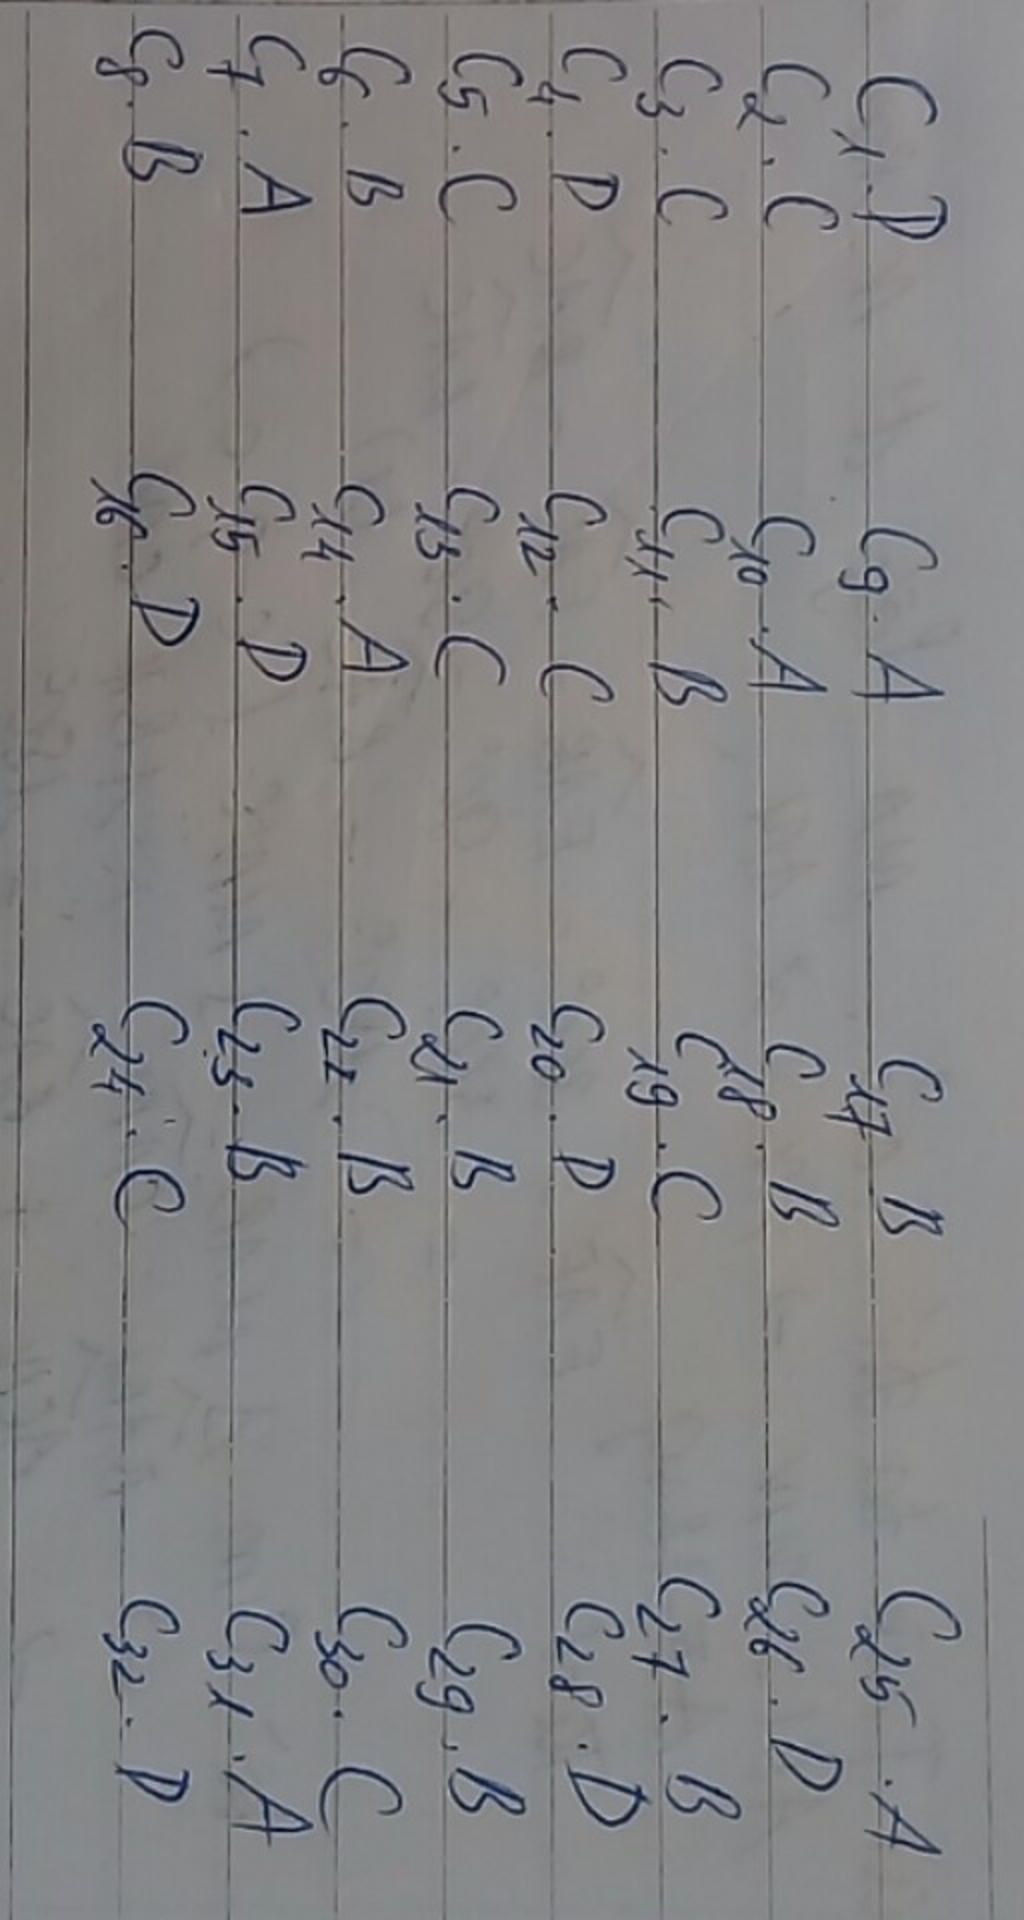 C1. D C9. A C17 B C25. A
C2. C C10. A C18. B C26. D
C3. C C11. B C19. C C27. B
C4. D C12. C C20. D C28. D
C5. C C13. C C21. B C29. B
C6. B C14. A C22. B C30. C
C7. A C15. D C23. B C31. A
C8. B C16. D C24. C C32. D